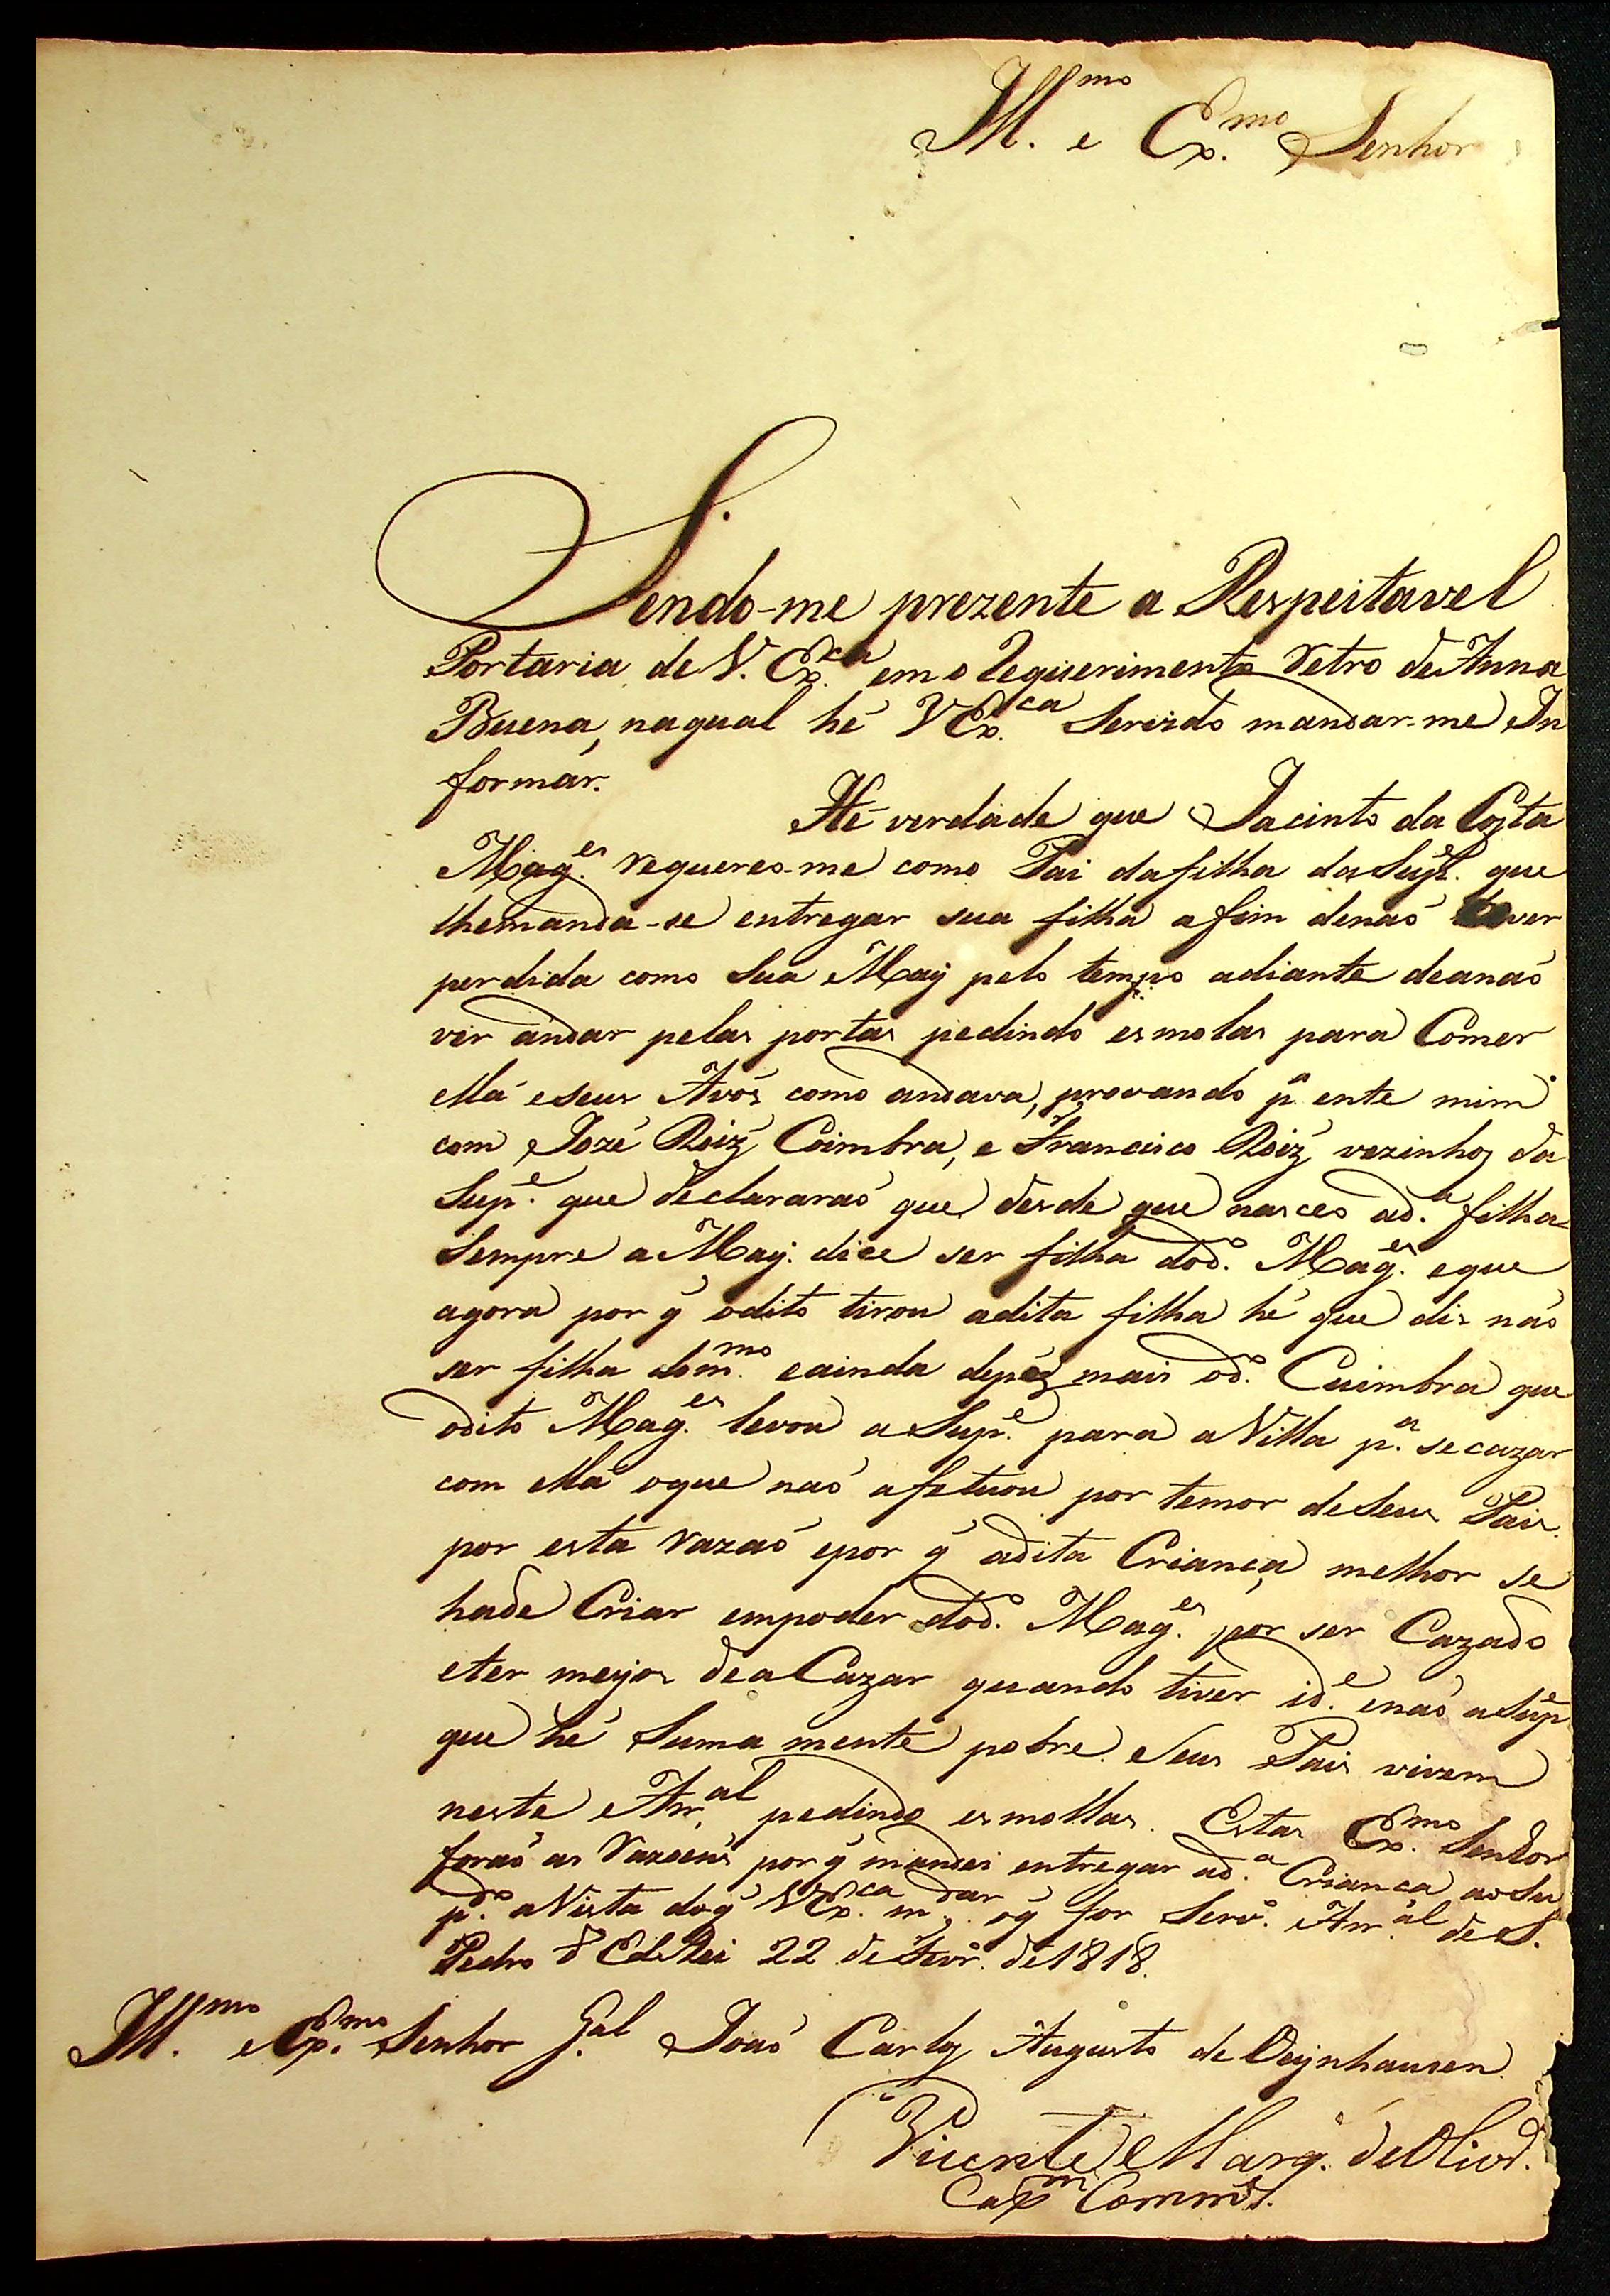 Ill.mo e Ex.mo Senhor
Sendo-me prezente a Respeitavel
Portaria de V. Ex.ca em o Requerimento Retro de Anna
Buena, naqual hé V Ex.ca Servido mandar-me In
formár.
Hé verdade que Jacinto da Costa
Mag.es requereo-me como Pai dafilha da Sup.e que
lhemanda-se entregar sua filha afim denaó ver
perdida como Sua Maÿ pelo tempo adiante deanaó
ver andar pelas portas pedindo esmolas para Comer
ella eseus Avós como andava, provando p.a ente mim
com Jozé Roiz' Coimbra, e Francisco Roiz' vezinhos da
Sup.e que declararaó que desde que nasceo ad.a filha
Sempre a Maÿ. dice ser filha dod.o Mag.es eque
agora por q' odito tirou adita filha hé que dis naó
ser filha dom.mo eainda depôz mais od.o Cuimbra que
odito Mag.es levou a Sup.e para a Villa p.a se cazar
com ella oque naó afetuou por temor deSeus Pais.
por esta razaó epor q' adita Criança melhor se
hade Criar empoder dod.o Mag.es por ser Cazado
eter meyos dea Cazar quando tiver id.e enaó a Sup.e
que hé Suma mente pobre. eSeus Pais vivem
neste Arr.al pedindo esmollas. Estas Ex.mo Senhor
foraó as Razoens por q' mandei entregar ad.a Criança ao Su
p.do a Vista doq' V Ex.ca m.dar oq' for Serv.o Arr.al de S.
Pedro d' El Rei 22 de Fevr.o de 1818.
Ill.mo e Ex.mo Senhor G.al Joaó Carlos Augusto de Oeÿnhausen
Vicente Marq. de Oliv.
Cap.m Comm.te